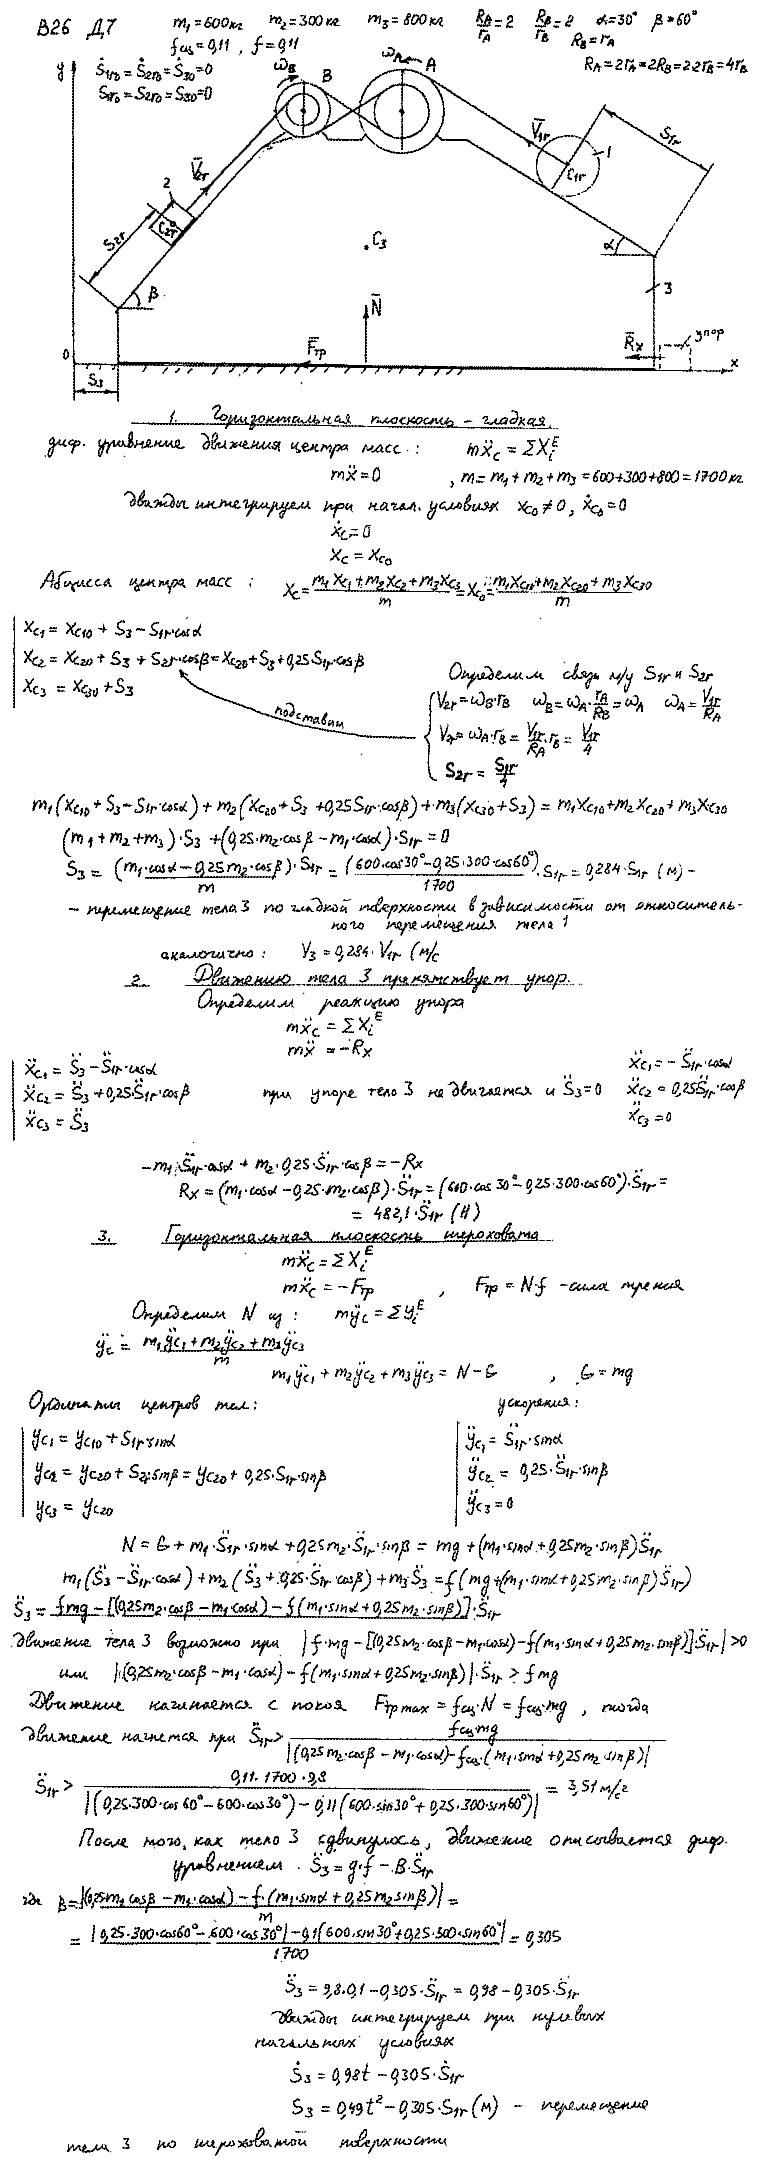 В26 Д7
m₁=600кг m₂=300кг m₃=800кг R_A/r_A=2 R_B/r_B=2 α=30° β=60°
f_сц=0,11, f=0,11 R_B=r_A
Ṡ₁r₀=Ṡ₂r₀=Ṡ₃₀=0
S₁r₀=S₂r₀=S₃₀=0
R_A=2r_A=2R_B=2·2r_B=4r_B
y
ω_B B ω_A A
V̄₁r S₁r
1 C₁r
V̄₂r
2 C₂r
S₂r
C₃
α
β
3
N̄
упор
F̄тр R̄x
0 x
S₃
1. Горизонтальная плоскость - гладкая
диф. уравнение движения центра масс: mẍ_C = ΣX_i^E
mẍ=0 , m=m₁+m₂+m₃=600+300+800=1700кг
дважды интегрируем при начал. условиях x_C0≠0, ẋ_C0=0
ẋ_C=0
x_C = x_C0
Абцисса центра масс: x_C=(m₁x_C1+m₂x_C2+m₃x_C3)/m=x_C0=(m₁x_C10+m₂x_C20+m₃x_C30)/m
x_C1 = x_C10 + S₃ - S₁r·cosα
x_C2 = x_C20 + S₃ + S₂r·cosβ=x_C20+S₃+0,25S₁r·cosβ
x_C3 = x_C30+S₃
Определим связь м/у S₁r и S₂r
подставим
V₂r=ω_B·r_B ω_B=ω_A·r_A/R_B=ω_A ω_A=V₁r/R_A
V₂r=ω_A·r_B=V₁r/R_A·r_B=V₁r/4
S₂r = S₁r/4
m₁(x_C10+S₃-S₁r·cosα)+m₂(x_C20+S₃+0,25S₁r·cosβ)+m₃(x_C30+S₃)=m₁x_C10+m₂x_C20+m₃x_C30
(m₁+m₂+m₃)·S₃+(0,25·m₂·cosβ-m₁·cosα)·S₁r=0
S₃=(m₁·cosα-0,25m₂·cosβ)/m·S₁r=(600·cos30°-0,25·300·cos60°)/1700·S₁r=0,284·S₁r (м) -
- перемещение тела 3 по гладкой поверхности в зависимости от относитель-
ного перемещения тела 1
аналогично: V₃=0,284·V₁r (м/с
2. Движению тела 3 препятствует упор.
Определим реакцию упора
mẍ_C = ΣX_i^E
mẍ = -Rx
ẍ_C1 = S̈₃-S̈₁r·cosα
ẍ_C2 = S̈₃+0,25·S̈₁r·cosβ
ẍ_C3 = S̈₃
при упоре тело 3 не двигается и S̈₃=0
ẍ_C1=-S̈₁r·cosα
ẍ_C2=0,25S̈₁r·cosβ
ẍ_C3=0
-m₁·S̈₁r·cosα+m₂·0,25·S̈₁r·cosβ=-Rx
Rx=(m₁·cosα-0,25·m₂·cosβ)·S̈₁r=(600·cos30°-0,25·300·cos60°)·S̈₁r=
= 482,1·S̈₁r (Н)
3. Горизонтальная плоскость шероховата
mẍ_C=ΣX_i^E
mẍ_C = -Fтр , Fтр = N·f - сила трения
Определим N из: mÿ_C = Σy_i^E
ÿ_C = (m₁ÿ_C1+m₂ÿ_C2+m₃ÿ_C3)/m
m₁ÿ_C1+m₂ÿ_C2+m₃ÿ_C3 = N-G , G=mg
Ординаты центров тел: ускорения:
y_C1=y_C10+S₁r·sinα
y_C2=y_C20+S₂r·sinβ=y_C20+0,25·S₁r·sinβ
y_C3 = y_C20
ÿ_C1=S̈₁r·sinα
ÿ_C2= 0,25·S̈₁r·sinβ
ÿ_C3=0
N=G+m₁·S̈₁r·sinα+0,25m₂·S̈₁r·sinβ=mg+(m₁·sinα+0,25m₂·sinβ)S̈₁r
m₁(S̈₃-S̈₁r·cosα)+m₂(S̈₃+0,25·S̈₁r·cosβ)+m₃S̈₃=f(mg+(m₁·sinα+0,25m₂·sinβ)S̈₁r)
S̈₃=(fmg-[(0,25m₂·cosβ-m₁·cosα)-f(m₁·sinα+0,25m₂·sinβ)]·S̈₁r)/m
Движение тела 3 возможно при |f·mg-[(0,25m₂·cosβ-m₁·cosα)-f(m₁·sinα+0,25m₂·sinβ)]·S̈₁r|>0
или |(0,25m₂·cosβ-m₁·cosα)-f(m₁·sinα+0,25m₂·sinβ)|·S̈₁r>fmg
Движение начинается с покоя Fтр max=f_сц·N=f_сц·mg, тогда
движение начнется при S̈₁r>f_сц·mg/|(0,25m₂·cosβ-m₁·cosα)-f_сц·(m₁·sinα+0,25m₂·sinβ)|
S̈₁r>0,11·1700·9,8/|(0,25·300·cos60°-600·cos30°)-0,11(600·sin30°+0,25·300·sin60°)|=3,51м/с²
После того, как тело 3 сдвинулось, движение описывается диф.
уравнением S̈₃=g·f-B·S̈₁r
где B=|(0,25m₂cosβ-m₁·cosα)-f·(m₁·sinα+0,25m₂sinβ)|/m=
=|0,25·300·cos60°-600·cos30°|-0,1(600·sin30°+0,25·300·sin60°)|/1700=0,305
S̈₃=9,8·0,1-0,305·S̈₁r=0,98-0,305·S̈₁r
дважды интегрируем при нулевых
начальных условиях
Ṡ₃=0,98t-0,305·Ṡ₁r
S₃=0,49t²-0,305·S₁r(м) - перемещение
тела 3 по шероховатой поверхности